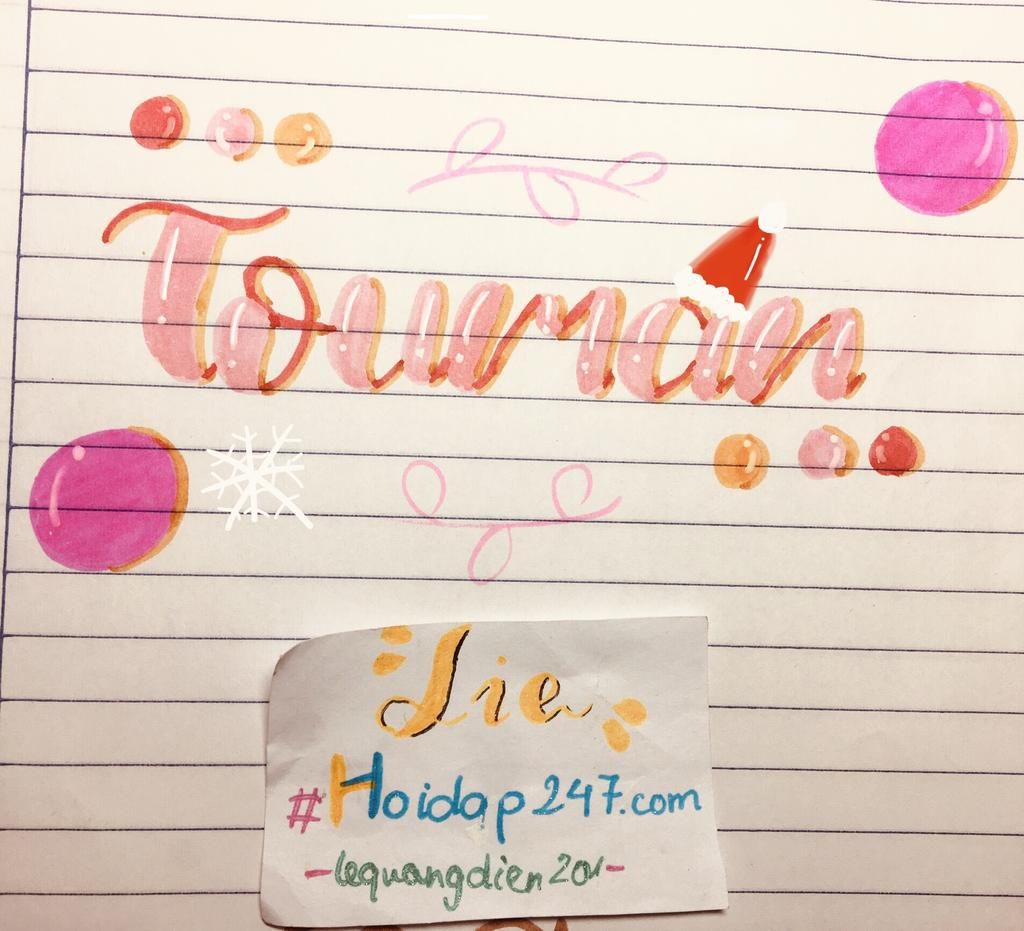 Touman
Lie
#Hoidap247.com
-lequangdien201-